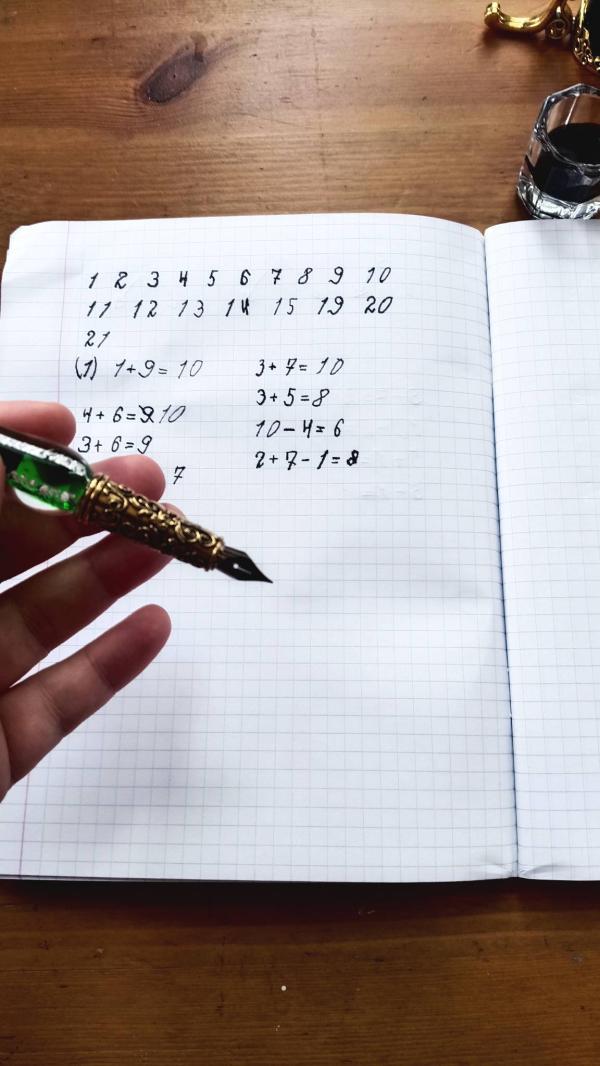 1 2 3 4 5 6 7 8 9 10
11 12 13 14 15 19 20
21
(1) 1+9=10
4+6=9 10
3+6=9
7
3+7=10
3+5=8
10-4=6
2+7-1=8